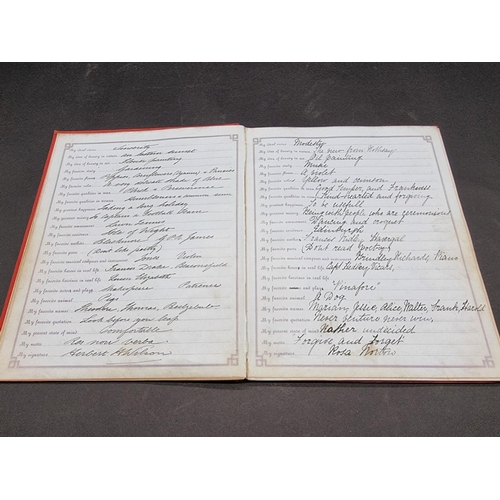 My ideal virtue Sincerity
My idea of beauty in nature
My idea of beauty in art Flower painting
My favorite study Gardening
My favorite flower Poppies, Sunflowers & Pansies
My favorite color A very delicate shade of Blue
My favorite qualities in man
My favorite qualities in woman Gentleness & common sense
My greatest happiness Taking a long holiday
My greatest misery To captain a Football Team
My favorite amusement Lawn Tennis
My favorite residence Isle of Wight
My favorite authors Blackmore, G.P.R. James
My favorite poets (Dont like poetry)
My favorite musical composer and instrument Violin
My favorite heroes in real life Francis Drake, Beaconsfield
My favorite heroines in real life Queen Elizabeth
My favorite actor and play Shakespeare Patience
My favorite animal Pigs
My favorite names Theodore, Thomas,
My favorite quotation Look before you leap
My present state of mind Comfortable
My motto Res non verba
My signature Herbert
My ideal virtue Modesty
My idea of beauty in nature The view from
My idea of beauty in art Oil Painting
My favorite study Music
My favorite flower A violet
My favorite color Yellow and crimson
My favorite qualities in man Good Temper, and Frankness
My favorite qualities in woman Kind-hearted and forgiving
My greatest happiness To be
My greatest misery Being with people who are ceremonious
My favorite amusement Dancing and croquet
My favorite residence Edinburgh
My favorite authors
My favorite poets (Dont read poetry)
My favorite musical composer and instrument Brindley Richards, Piano
My favorite heroes in real life Capt Hedley Vicars
and play "Pinafore"
My favorite animal A Dog
My favorite names Marian, Jessie, Alice, Walter, Frank, Harold
My favorite quotation Never venture never win
My present state of mind Rather undecided
My motto Forgive and Forget
My signature Rosa Norton